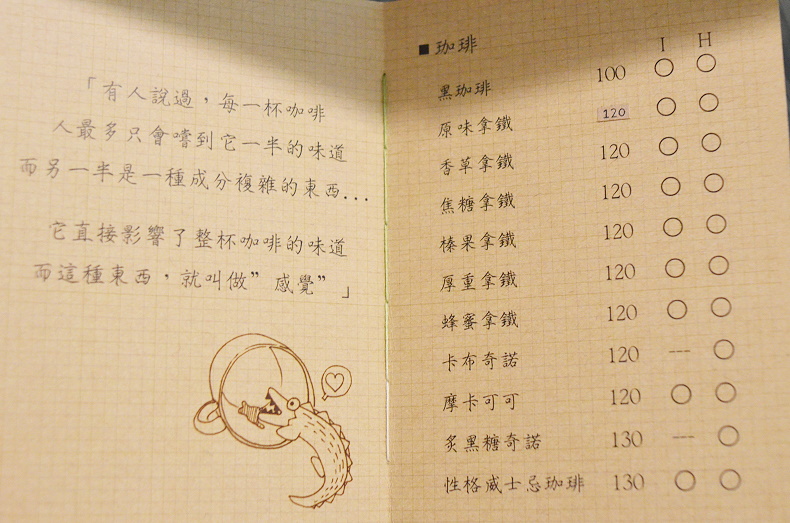 「有人說過，每一杯咖啡
人最多只會嚐到它一半的味道
而另一半是一種成分複雜的東西...
它直接影響了整杯咖啡的味道
而這種東西，就叫做”感覺”」
■ 珈琲 I H
黑珈琲 100 ○ ○
原味拿鐵 120 ○ ○
香草拿鐵 120 ○ ○
焦糖拿鐵 120 ○ ○
榛果拿鐵 120 ○ ○
厚重拿鐵 120 ○ ○
蜂蜜拿鐵 120 ○ ○
卡布奇諾 120 --- ○
摩卡可可 120 ○ ○
炙黑糖奇諾 130 --- ○
性格威士忌珈琲 130 ○ ○